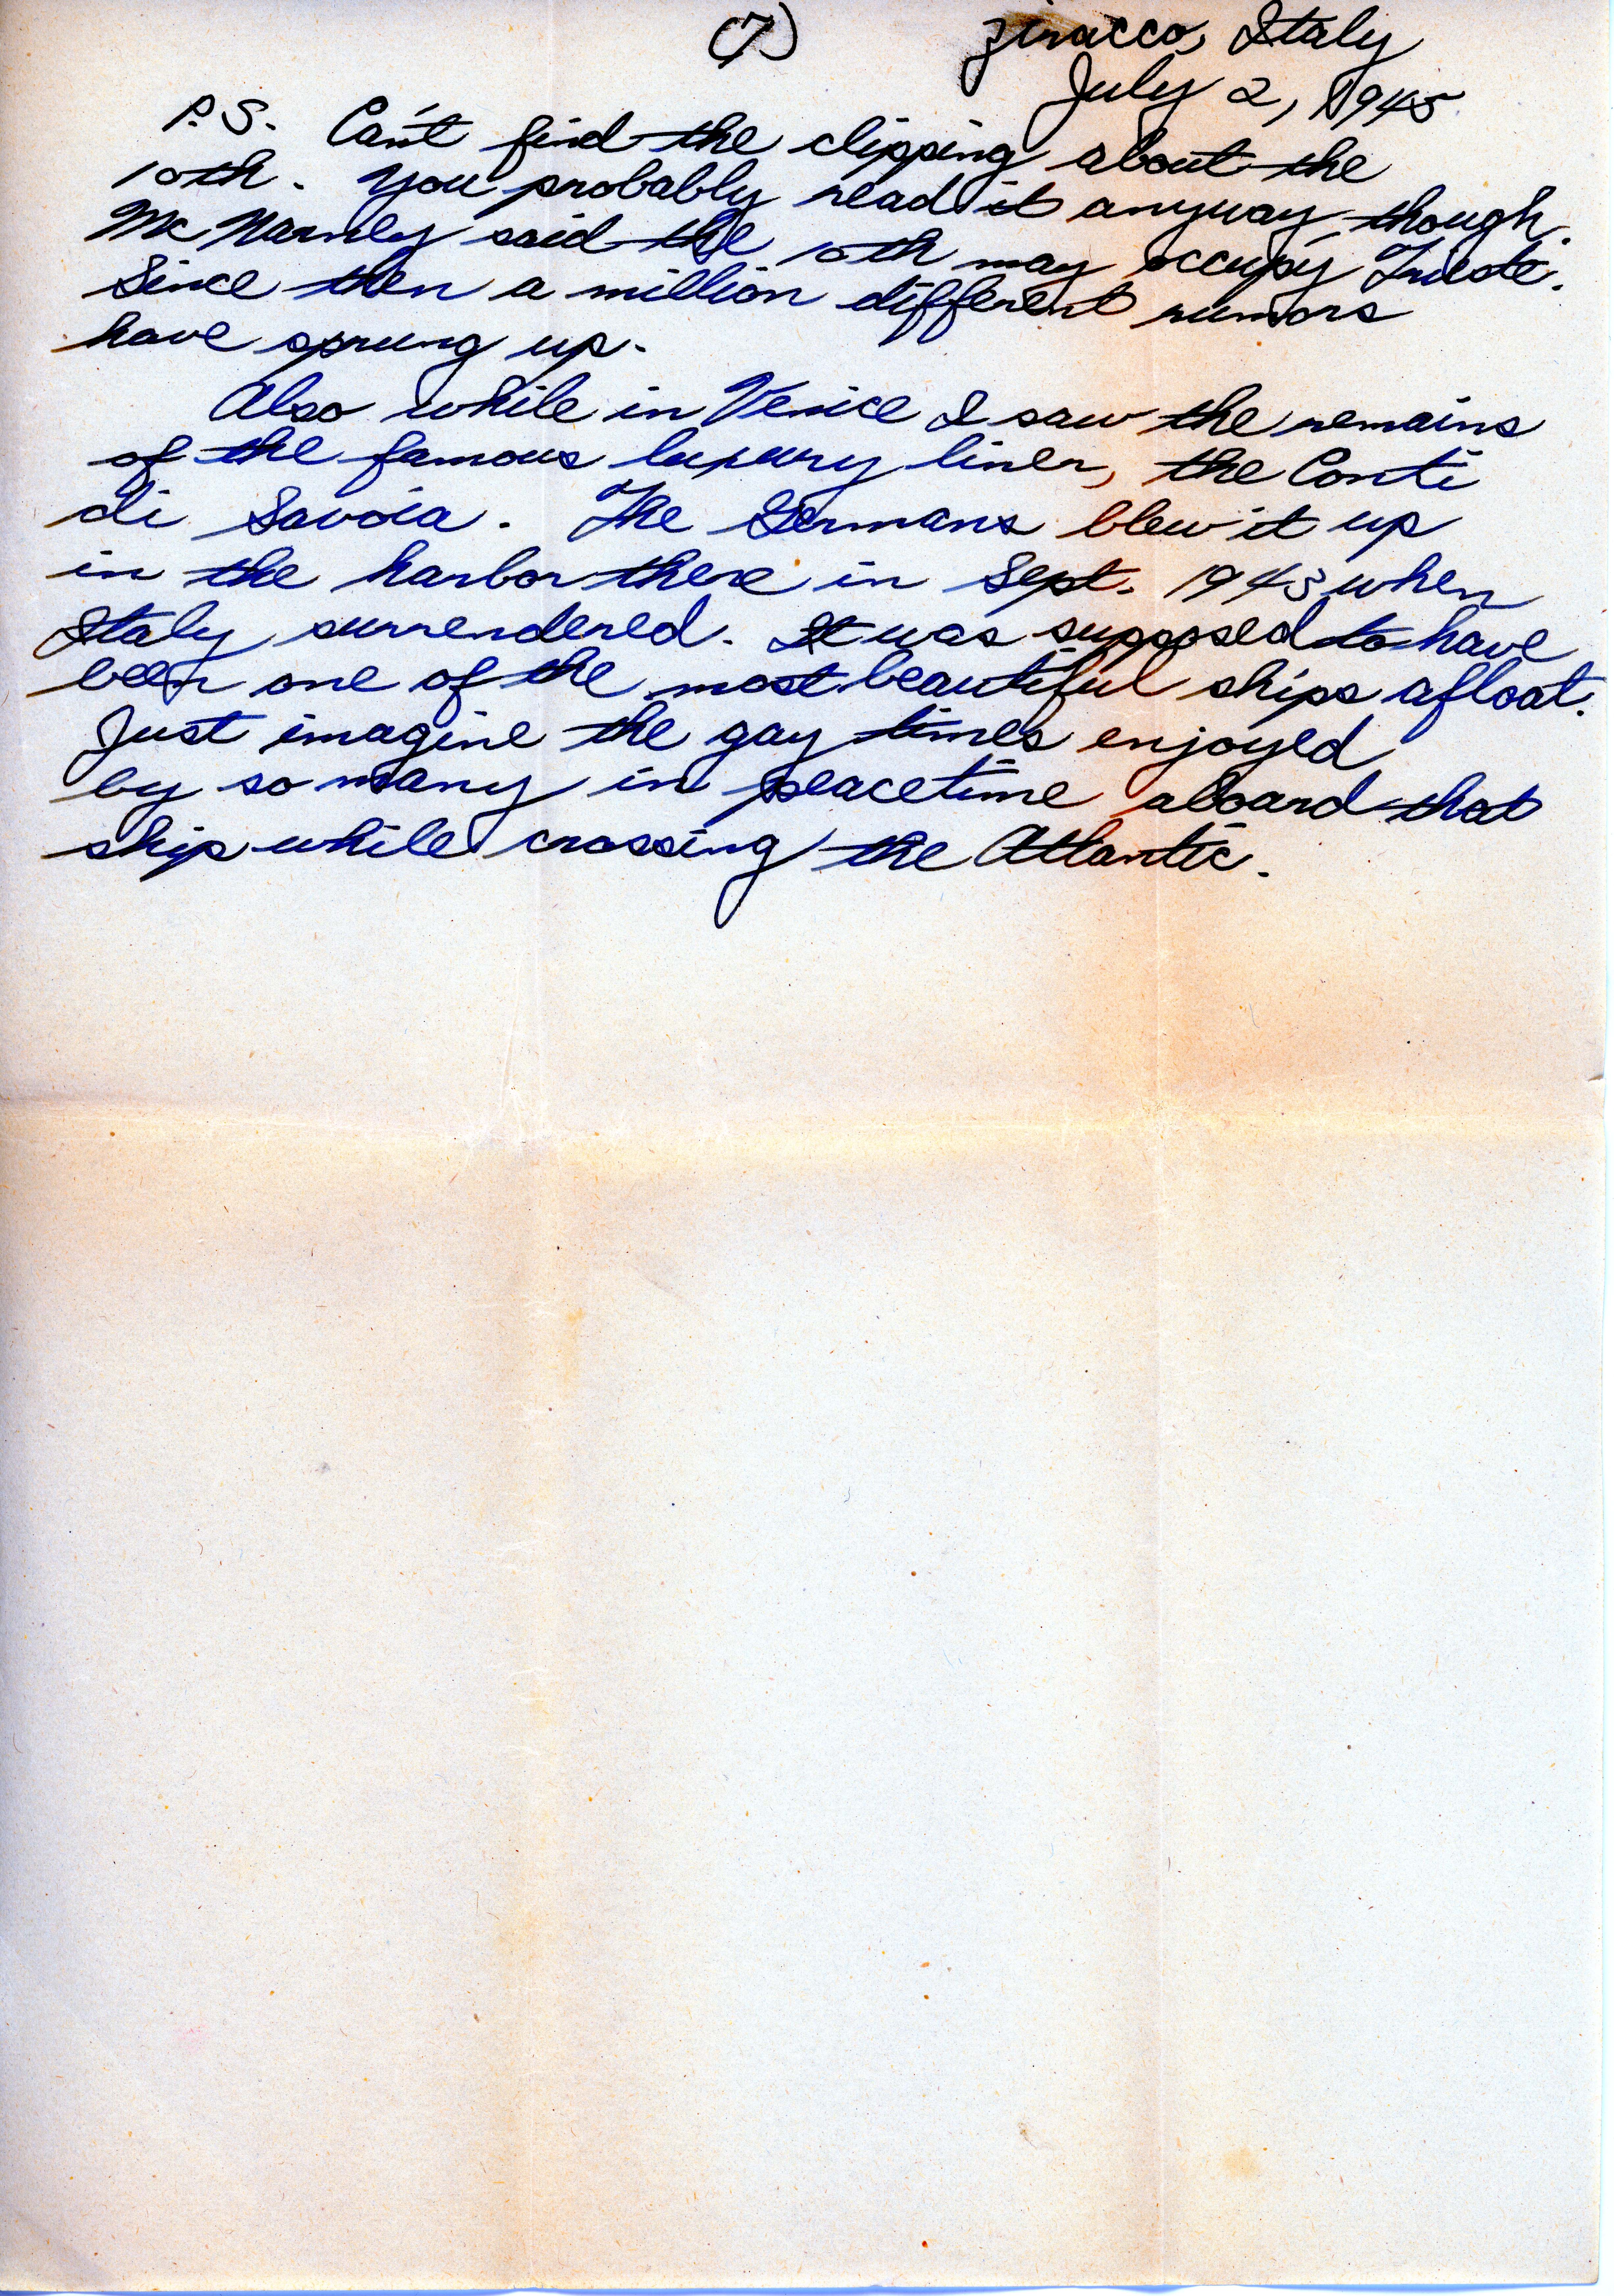 (7)
Ziracco, Italy
July 2, 1945
P.S. Can't find the clipping about the
10th. You probably read it anyway though.
McNarney said the 10th may occupy Trieste.
Since then a million different rumors
have sprung up.
Also while in Venice I saw the remains
of the famous luxury liner, the Conti
di Savoia. The Germans blew it up
in the harbor there in Sept. 1943 when
Italy surrendered. It was supposed to have
been one of the most beautiful ships afloat.
Just imagine the gay times enjoyed
by so many in peacetime aboard that
ship while crossing the Atlantic.